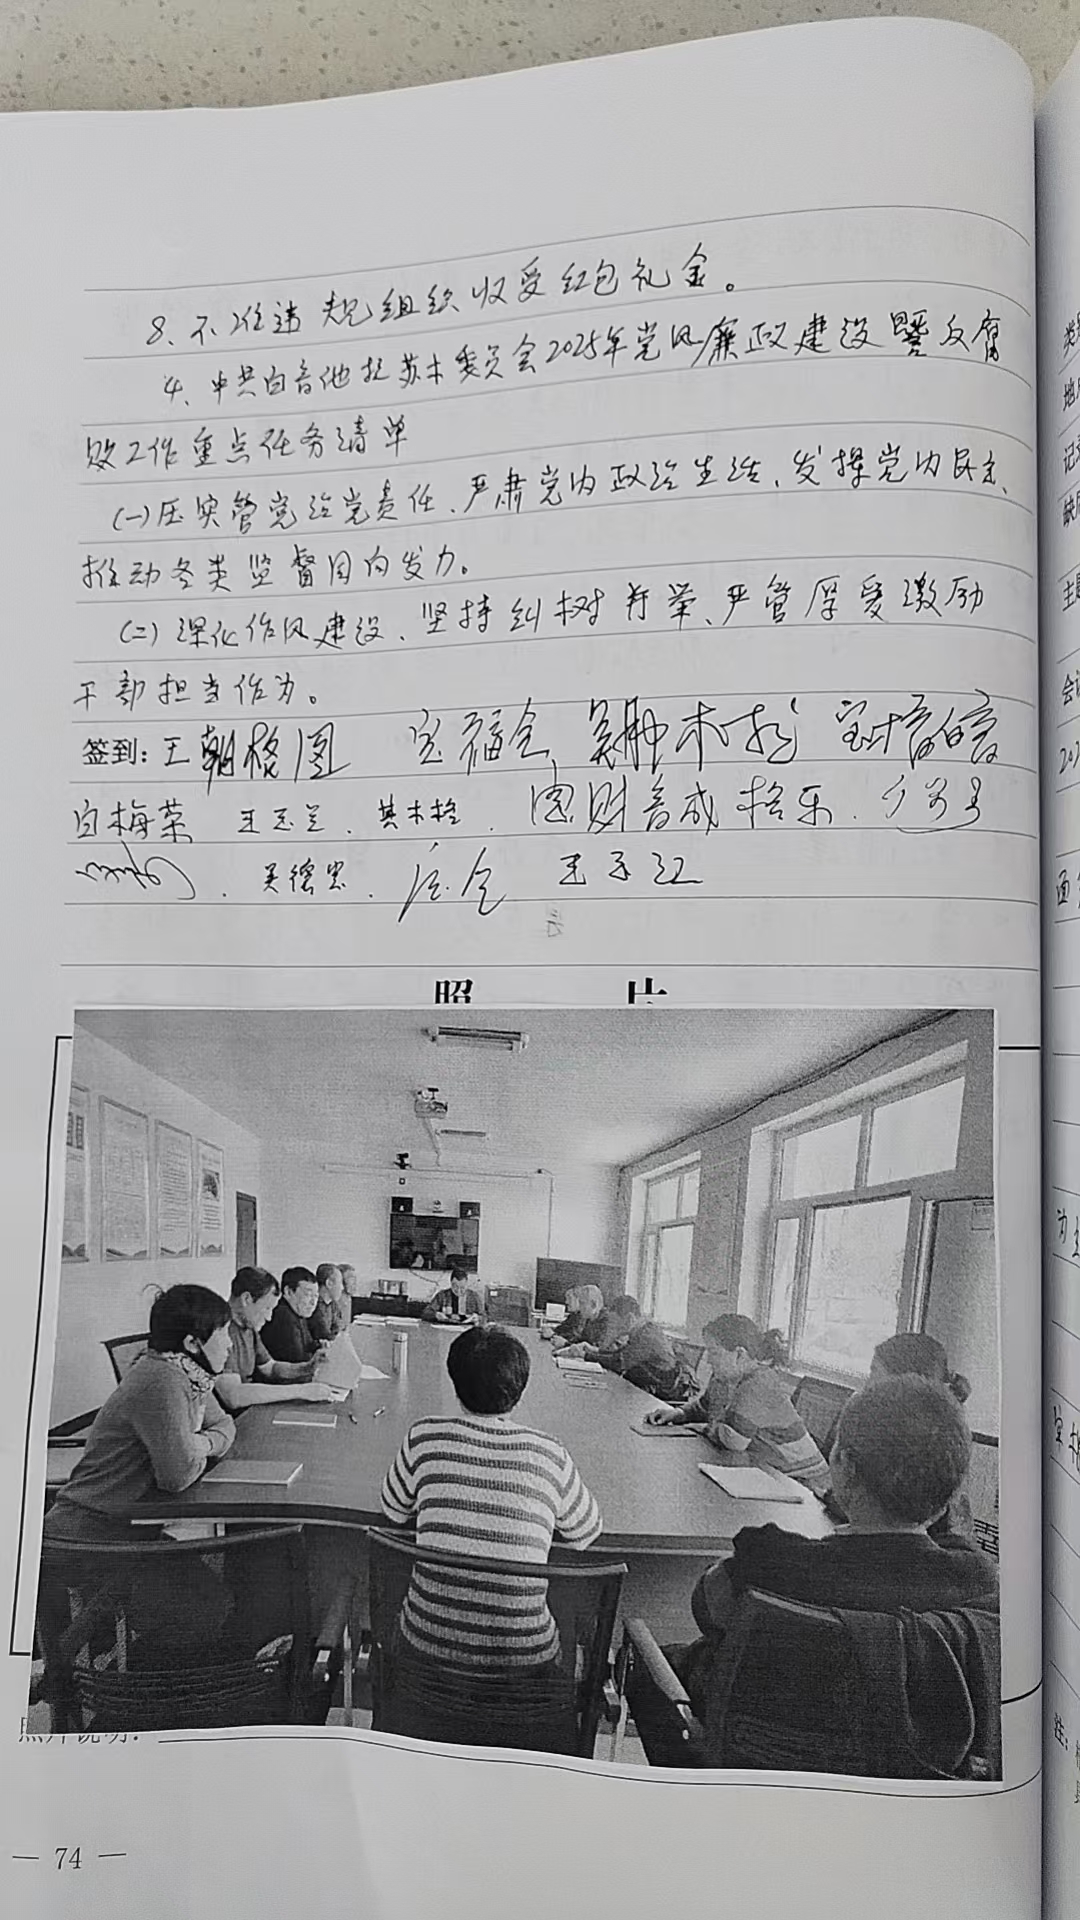 8、不准违规组织收受红包礼金。
4、中共白音他拉苏木委员会2025年党风廉政建设暨反腐
败工作重点任务清单
(一)压实管党治党责任、严肃党内政治生活、发挥党内民主、
推动各类监督同向发力。
(二)深化作风建设、坚持纠树并举、严管厚爱激励
干部担当作为。
签到：王朝格图 宝福全
白梅荣 王玉兰、其木格、
吴德忠、
照 片
照片说明：
— 74 —
类
地
记
缺
主题
会议